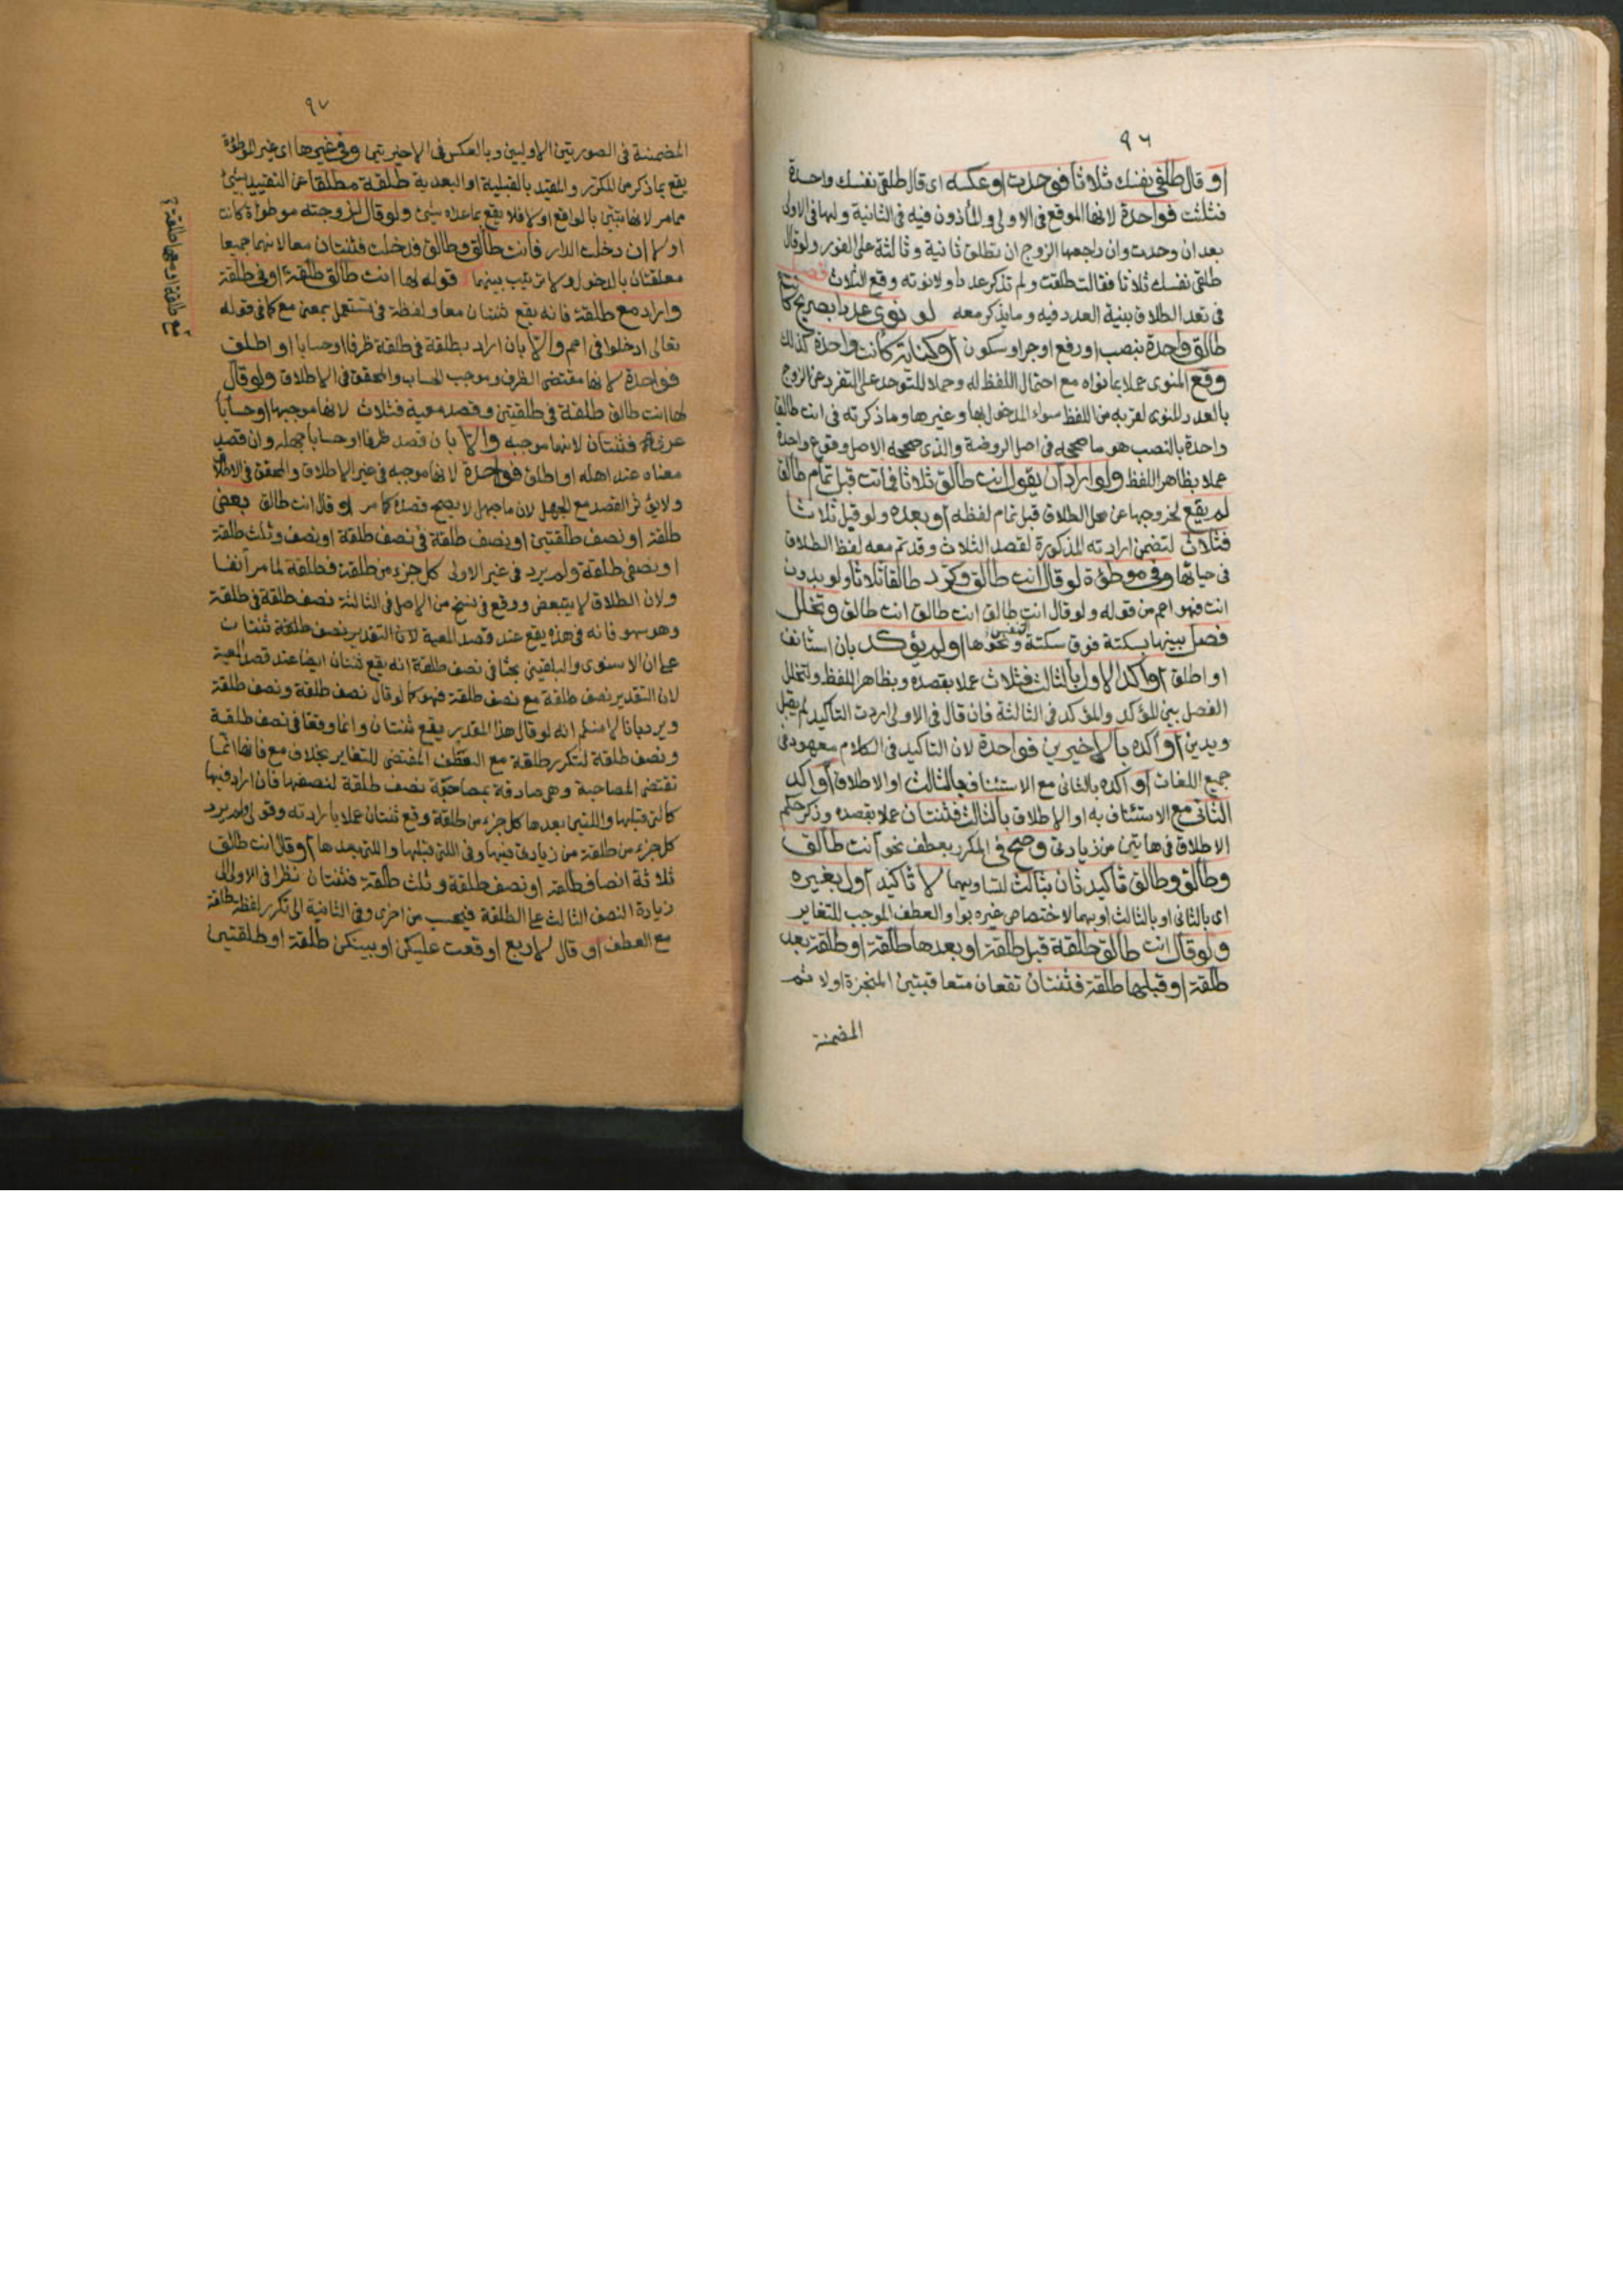 ٩٦
او قال طلقي نفسك ثلاثا فوحدت او عكسه اى قال طلقي نفسك واحدة
فثلثت فواحدة لانها الموقع في الاولى والمأذون فيه في الثانية ولها في الاولى
بعد ان وحدت وان راجعها الزوج ان تطلق ثانية وثالثة على الفور ولو قال
طلقي نفسك ثلاثا فقالت طلقت ولم تذكر عددا ولا نوته وقع الثلاث فصل
في تعدد الطلاق بنية العدد فيه وما يذكر معه لو نوى عددا بصريح كانت
طالق واحدة بنصب او رفع او جر او سكون او كناية كانت واحدة كذلك
وقع المنوى عملا بما نواه مع احتمال اللفظ له وحملا للتوحد على التفرد عن الزوج
بالعدد المنوى لقربه من اللفظ سواء المدخول بها وغيرها وما ذكرته في انت طالق
واحدة بالنصب هو ما صححه في اصل الروضة والذى صححه الاصل وقوع واحدة
عملا بظاهر اللفظ ولو اراد ان يقول انت طالق ثلاثا فماتت قبل تمام طالق
لم يقع لخروجها عن محل الطلاق قبل تمام لفظه او بعده ولو قبل ثلاثا
فثلاث لتضمن ارادته المذكورة لقصد الثلاث وقد تم معه لفظ الطلاق
في حياتها وفي موطؤة لو قال انت طالق وكرر طالقا ثلاثا ولو بدون
انت فهو اعم من قوله ولو قال انت طالق انت طالق انت طالق وتخلل
فصل بينها بسكتة فوق سكتة التنفس ونحوها او لم يؤكد بان استأنف
او اطلق او اكد الاول بالثالث فثلاث عملا بقصده وبظاهر اللفظ ولتخلل
الفصل بين المؤكد والمؤكد في الثالثة فان قال في الاولى اردت التاكيد لم يقبل
ويدين او اكده بالاخيرين فواحدة لان التاكيد في الكلام معهود في
جميع اللغات او اكده بالثاني مع الاستئناف بالثالث او الاطلاق او اكد
الثاني مع الاستئناف به او الاطلاق بالثالث فثنتان عملا بقصده وذكر حكم
الاطلاق في هاتين من زيادتي وصح في المكرر بعطف نحو انت طالق
وطالق وطالق تأكيد ثان بثالث لتساويهما لا تأكيد اول بغيره
اى بالثاني او بالثالث او بهما لاختصاص غيره بواو العطف الموجب للتغاير
ولو قال انت طالق طلقة قبل طلقة او بعدها طلقة او طلقة بعد
طلقة او قبلها طلقة فثنتان تقعان متعاقبتين المنجزة اولا ثم
المضمنة
٩٧
المضمنة في الصورتين الاوليين وبالعكس في الاخيرتين وفي غيرها اى غير الموطؤة
يقع بما ذكر من المكرر والمقيد بالقبلية او البعدية طلقة مطلقا عن التقييد بشئ
مما مر لانها تبين بالواقع اولا فلا يقع بما عداه شئ ولو قال لزوجته موطوأة كانت
اولا ان دخلت الدار فانت طالق وطالق فدخلت فثنتان معا لانهما جميعا
معلقتان بالدخول ولا ترتيب بينهما كقوله لها انت طالق طلقة او في طلقة
واراد مع طلقة فانه يقع ثنتان معا ولفظة في تستعمل بمعنى مع كما في قوله
تعالى ادخلوا في امم والا بان اراد بطلقة في طلقة ظرفا او حسابا او اطلق
فواحدة لانها مقتضى الظرف وموجب الحساب والمحقق في الاطلاق ولو قال
لها انت طالق طلقة في طلقتين وقصد معية فثلاث لانها موجبها او حسابا
عرفه فثنتان لانهما موجبه والا بان قصد ظرفا او حسابا جهله وان قصد
معناه عند اهله او اطلق فواحدة لانها موجبه في غير الاطلاق والمحقق في الاطلاق
ولا يؤثر القصد مع الجهل لان ما جهل لا يصح قصده كما مر او قال انت طالق بعض
طلقة او نصف طلقتين او نصف طلقة في نصف طلقة او نصف وثلث طلقة
او نصفي طلقة ولم يرد في غير الاولى كل جزء من طلقة فطلقة لما مر آنفا
ولان الطلاق لا يتبعض ووقع في نسخ من الاصل في الثالثة نصف طلقة في طلقة
وهو سهو فانه في هذه يقع عند قصد المعية لان التقدير نصف طلقة ثنتان
على ان الاسنوى والبلقيني بحثا في نصف طلقة انه يقع ثنتان ايضا عند قصد المعية
لان التقدير نصف طلقة مع نصف طلقة فهو كما لو قال نصف طلقة ونصف طلقة
ويرد بانا لا نسلم انه لو قال هذا المقدر يقع ثنتان وانما وقعتا في نصف طلقة
ونصف طلقة لتكرر طلقة مع العطف المقتضى للتغاير بخلاف مع فانها انما
تقتضى المصاحبة وهي صادقة بمصاحبة نصف طلقة لنصفها فان اراد فيها
كالتي قبلها واللتين بعدها كل جزء من طلقة وقع ثنتان عملا بارادته وقولي ولم يرد
كل جزء من طلقة من زيادتي فيها وفي التي قبلها والتي بعدها او قال انت طالق
ثلاثة انصاف طلقة او نصف طلقة وثلث طلقة فثنتان نظرا في الاولى الى
زيادة النصف الثالث على الطلقة فيحسب من اخرى وفي الثانية الى تكرر لفظة طلقة
مع العطف او قال لاربع اوقعت عليكن او بينكن طلقة او طلقتين
مع طلقة او معها طلقة